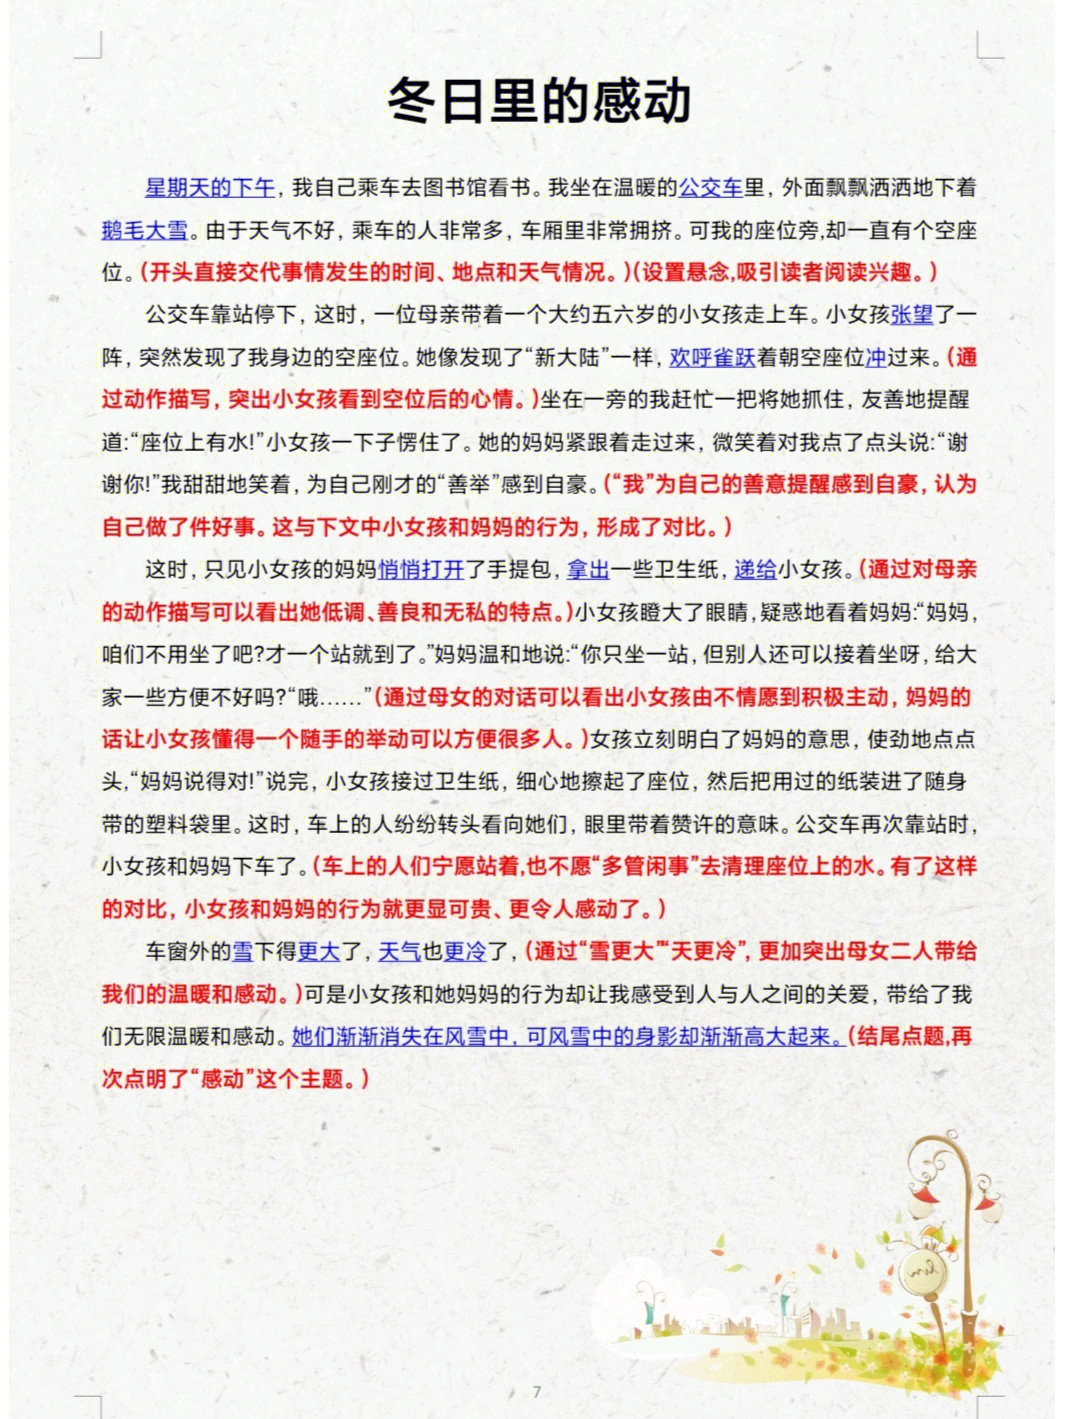 冬日里的感动
星期天的下午，我自己乘车去图书馆看书。我坐在温暖的公交车里，外面飘飘洒洒地下着
鹅毛大雪。由于天气不好，乘车的人非常多，车厢里非常拥挤。可我的座位旁,却一直有个空座
位。(开头直接交代事情发生的时间、地点和天气情况。)(设置悬念,吸引读者阅读兴趣。)
公交车靠站停下，这时，一位母亲带着一个大约五六岁的小女孩走上车。小女孩张望了一
阵，突然发现了我身边的空座位。她像发现了“新大陆”一样，欢呼雀跃着朝空座位冲过来。(通
过动作描写，突出小女孩看到空位后的心情。)坐在一旁的我赶忙一把将她抓住，友善地提醒
道:“座位上有水!”小女孩一下子愣住了。她的妈妈紧跟着走过来，微笑着对我点了点头说:“谢
谢你!”我甜甜地笑着，为自己刚才的“善举”感到自豪。(“我”为自己的善意提醒感到自豪，认为
自己做了件好事。这与下文中小女孩和妈妈的行为，形成了对比。)
这时，只见小女孩的妈妈悄悄打开了手提包，拿出一些卫生纸，递给小女孩。(通过对母亲
的动作描写可以看出她低调、善良和无私的特点。)小女孩瞪大了眼睛，疑惑地看着妈妈:“妈妈，
咱们不用坐了吧?才一个站就到了。”妈妈温和地说:“你只坐一站，但别人还可以接着坐呀，给大
家一些方便不好吗?“哦……”(通过母女的对话可以看出小女孩由不情愿到积极主动，妈妈的
话让小女孩懂得一个随手的举动可以方便很多人。)女孩立刻明白了妈妈的意思，使劲地点点
头,“妈妈说得对!”说完，小女孩接过卫生纸，细心地擦起了座位，然后把用过的纸装进了随身
带的塑料袋里。这时，车上的人纷纷转头看向她们，眼里带着赞许的意味。公交车再次靠站时，
小女孩和妈妈下车了。(车上的人们宁愿站着,也不愿“多管闲事”去清理座位上的水。有了这样
的对比，小女孩和妈妈的行为就更显可贵、更令人感动了。)
车窗外的雪下得更大了，天气也更冷了，(通过“雪更大”“天更冷”，更加突出母女二人带给
我们的温暖和感动。)可是小女孩和她妈妈的行为却让我感受到人与人之间的关爱，带给了我
们无限温暖和感动。她们渐渐消失在风雪中，可风雪中的身影却渐渐高大起来。(结尾点题,再
次点明了“感动”这个主题。)
7